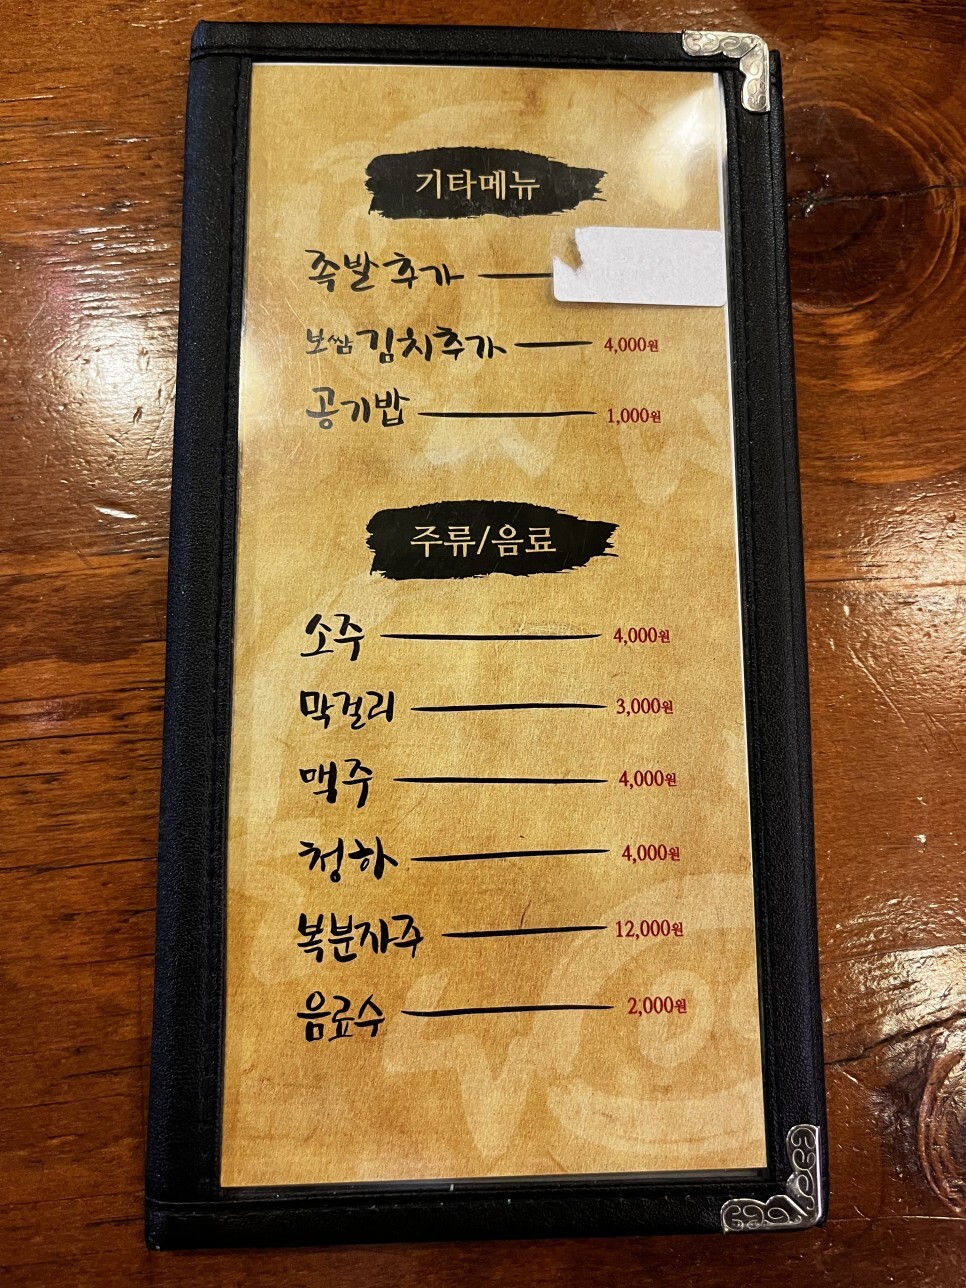 기타메뉴
족발추가
보쌈김치추가 4,000원
공기밥 1,000원
주류/음료
소주 4,000원
막걸리 3,000원
맥주 4,000원
청하 4,000원
복분자주 12,000원
음료수 2,000원